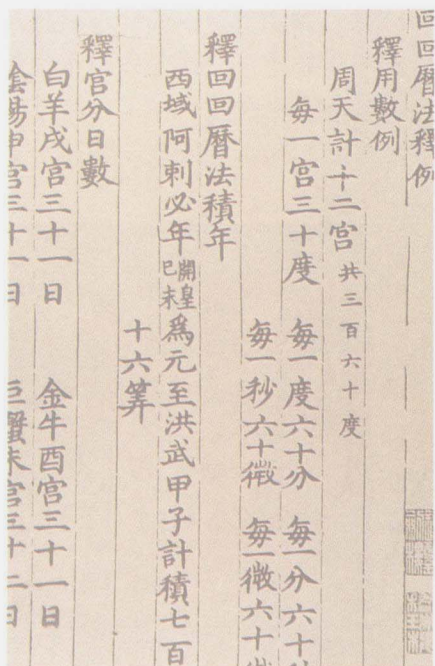 回回曆法釋例
釋用數例
周天計十二宮共三百六十度
每一宮三十度 每一度六十分 每一分六十
每一秒六十微 每一微六十
釋回回曆法積年
西域阿剌必年開皇己未爲元至洪武甲子計積七百
十六筭
釋官分日數
白羊戌宮三十一日 金牛酉宮三十一日
陰陽申宮三十一日 巨蟹未宮三十二日